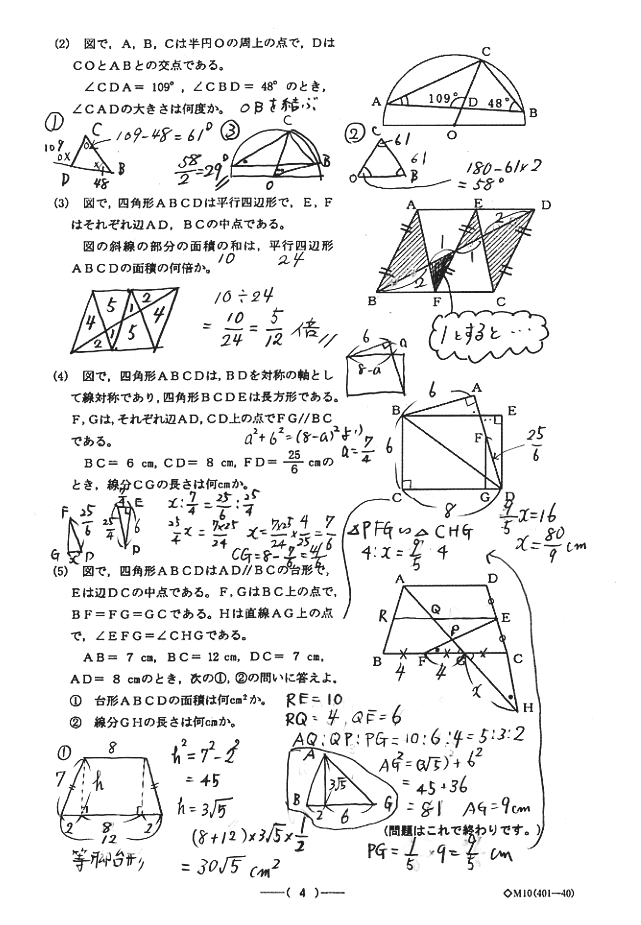 (2) 図で，A，B，Cは半円Oの周上の点で，Dは
COとABとの交点である。
∠CDA＝109°，∠CBD＝48°のとき，
∠CADの大きさは何度か。 OBを結ぶ
C
A 109° D 48° B
O
① C 109-48=61°
109 D 48 B
58/2=29°
③ C B O
② C 61
61 O B
180-61×2
=58°
(3) 図で，四角形ABCDは平行四辺形で，E，F
はそれぞれ辺AD，BCの中点である。
図の斜線の部分の面積の和は，平行四辺形
ABCDの面積の何倍か。 10 24
A E D
2 1 1 2
B F C
4 5 1 2 4
2 1 5
10÷24
=10/24=5/12倍
1とすると…
(4) 図で，四角形ABCDは，BDを対称の軸とし
て線対称であり，四角形BCDEは長方形である。
F，Gは，それぞれ辺AD，CD上の点でFG//BC
である。
a²+6²=(8-a)²より
a=7/4
BC＝6cm，CD＝8cm，FD＝25/6cmの
とき，線分CGの長さは何cmか。
6 a
8-a
6 A
B E
F 25/6
6
C G D
8
F 25/6
G D
7/4 E
25/4 6
D
x:7/4=25/6:25/4
25/4x=7×25/24 x=7×25/24×4/25=7/6
CG=8-7/6=41/6
△PFG∽△CHG
4:x=9/5:4
9/5x=16
x=80/9cm
(5) 図で，四角形ABCDはAD//BCの台形で，
Eは辺DCの中点である。F，GはBC上の点で，
BF＝FG＝GCである。Hは直線AG上の点
で，∠EFG＝∠CHGである。
AB＝7cm，BC＝12cm，DC＝7cm，
AD＝8cmのとき，次の①，②の問いに答えよ。
① 台形ABCDの面積は何cm²か。
② 線分GHの長さは何cmか。
A D
R Q E
P
B F G C
4 4 x
H
RE=10
RQ=4，QE=6
AQ:QP:PG=10:6:4=5:3:2
①
8
7 h
2 8 2
12
等脚台形
h²=7²-2²
=45
h=3√5
(8+12)×3√5×1/2
=30√5cm²
A
3√5
B 2 6 G
AG²=(3√5)²+6²
=45+36
=81 AG=9cm
(問題はこれで終わりです。)
PG=1/5×9=9/5cm
—( 4 )—
◇M10(401—40)